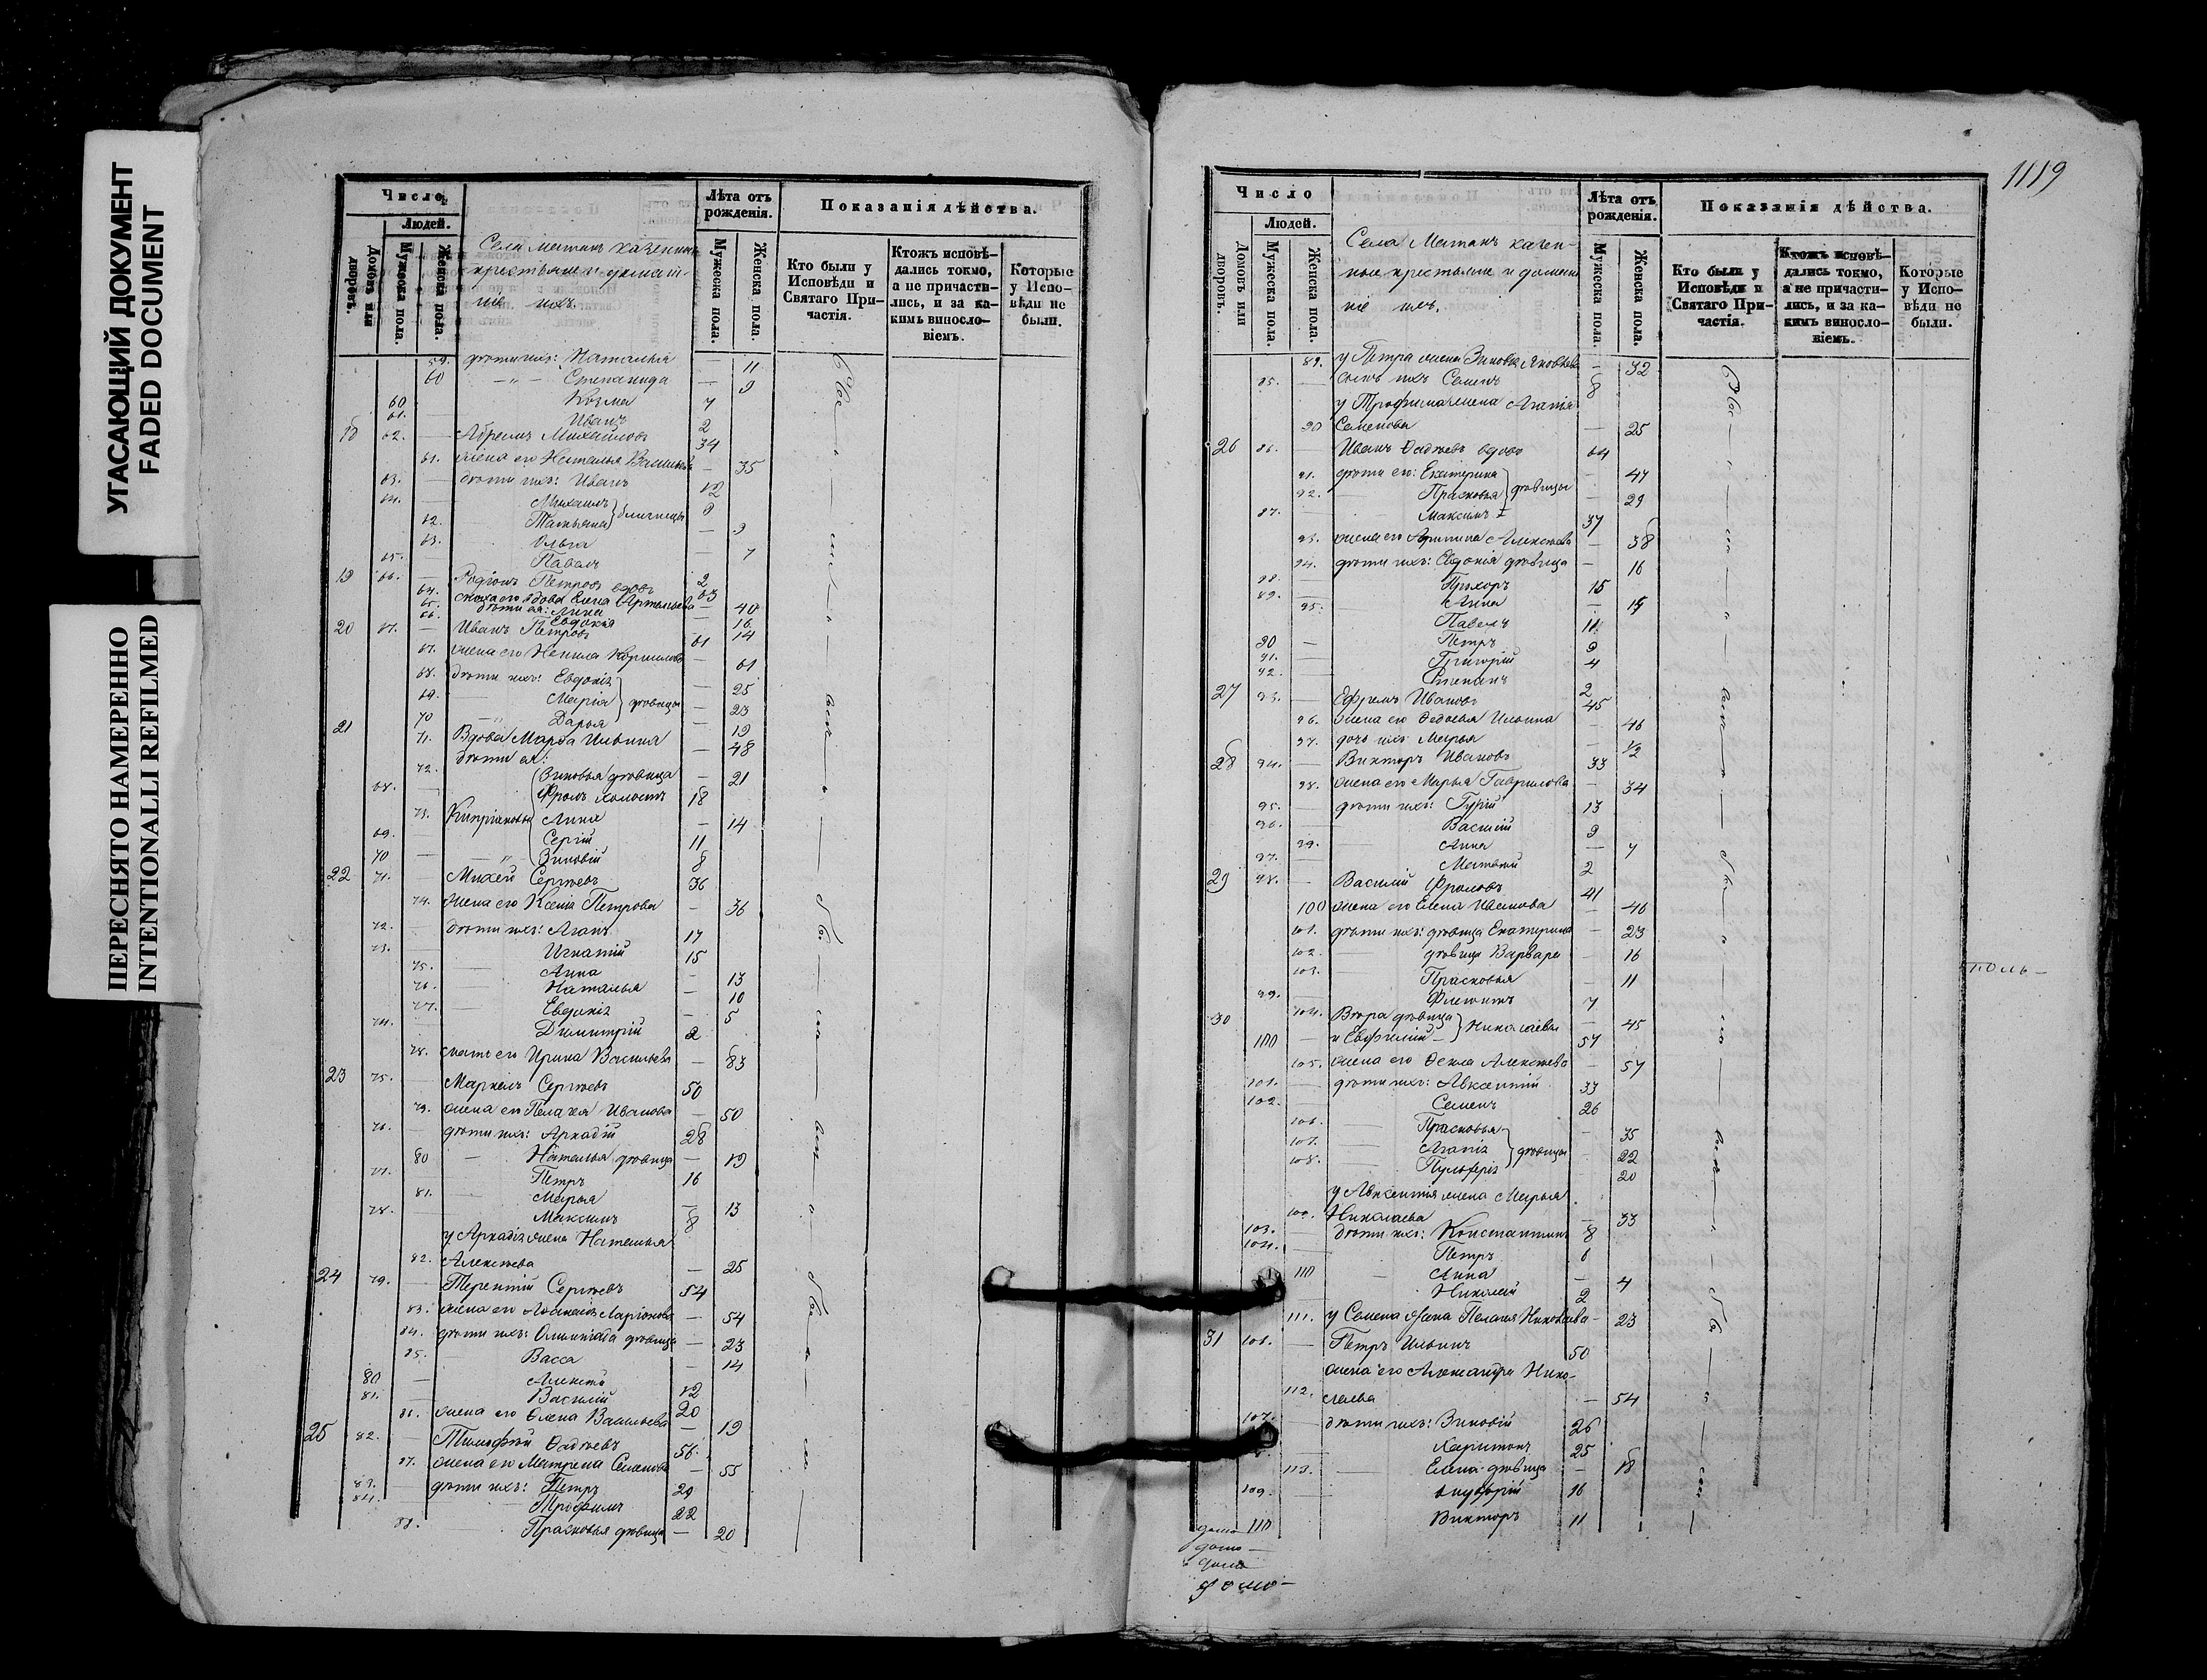 УГАСАЮЩИЙ ДОКУМЕНТ
FADED DOCUMENT
ПЕРЕСНЯТО НАМЕРЕННО
INTENTIONALLI REFILMED
Число
Людей.
Домовъ или дворовъ.
Мужеска пола.
Женска пола.
Села Матакъ казенные
крестьяне и домаш-
ніе ихъ.
Лѣта отъ рожденія.
Мужеска пола.
Женска пола.
Показанія дѣйства.
Кто были у Исповѣди и Святаго При-частія.
Ктожъ исповѣ-дались токмо, а не причасти-лись, и за ка-кимъ винословіемъ.
Которые у Испо-вѣди не были.
59. дѣти ихъ: Наталья — 11
60 —"— Степанида — 9
60 Козма 4
61. Иванъ 2
18 62. — Абрамъ Михайловъ 34
61. жена его Наталья Васильева — 35
63. — дѣти ихъ: Иванъ 12
64. — Михаилъ } близнецы 9
62. Татьяна — 9
63. Ольга — 7
65. Павелъ 2
19 66. — Родіонъ Петровъ вдовъ 63
64. сноха его вдова Елена Артемьева — 40
65. дѣти ея: Анна — 16
66. Евдокія — 14
20 67. — Иванъ Петровъ 61
67. жена его Ненила Корнилова — 61
68. дѣти ихъ: Евдокія — 25
69. Марія } дѣвицы — 23
70 —"— Дарья — 19
21 71. Вдова Марѳа Ильина — 48
дѣти ея:
72. Зиновья дѣвица — 21
68. — Фролъ холостъ 18
73. Кипріяновы Анна — 14
69. Сергій 11
70 — —"— Зиновій 8
22 71. — Михей Сергѣевъ 36
74. жена его Ксенія Петрова — 36
72. — дѣти ихъ: Агапъ 17
73. Игнатій 15
75. — Анна — 13
76. — Наталья — 10
77. Евдокія — 5
74. — Димитрій 2
78. мать его Ирина Васильева — 83
23 75. — Маркелъ Сергѣевъ 50
79. жена его Пелагея Иванова — 50
76. — дѣти ихъ: Аркадій 28
80 — Наталья дѣвица — 19
77. Петръ 16
81. — Марья — 13
78. — Максимъ 8
у Аркадія жена Наталья
82. Алексѣева — 25
24 79. — Терентій Сергѣевъ 54
83. жена его Аѳанасія Ларіонова — 54
84. дѣти ихъ: Олимпіада дѣвица — 23
85. — Васса — 14
80 — Алексѣй 12
81. — Василій 20
86. жена его Олена Васильева — 19
25 82. — Тимофей Фадѣевъ 56.
87. жена его Матрена Семенова — 55
83. — дѣти ихъ: Петръ 29
84. — Трофимъ 22
88. Прасковья дѣвица — 20
1119
Число
Людей.
Домовъ или дворовъ.
Мужеска пола.
Женска пола.
Села Матакъ казен-
ные крестьяне и домаш-
ніе ихъ.
Лѣта отъ рожденія.
Мужеска пола.
Женска пола.
Показанія дѣйства.
Кто были у Исповѣди и Святаго При-частія.
Ктожъ исповѣ-дались токмо, а не причасти-лись, и за ка-кимъ винословіемъ.
Которые у Испо-вѣди не были.
89. у Петра жена Зиновья Яковлева — 32
85. — сынъ ихъ Семенъ 8
у Трофима жена Агапія
90 Семенова — 25
26 86. — Иванъ Фадѣевъ вдовъ 64
91. дѣти его: Екатерина } дѣвицы — 47
92. — Прасковья — 29
87. — Максимъ 37
93. жена его Агрипина Алексѣева — 38
94. дѣти ихъ: Евдокія дѣвица — 16
88. Прохоръ 15
95. Анна — 14
89. — Павелъ 11
90 — Петръ 9
91. — Григорій 4
92. — Степанъ 2
27 93. — Ефремъ Ивановъ 45
96. жена его Федосья Ильина — 46
97. дочь ихъ Марья — 1/2
28 94. — Викторъ Ивановъ 33
98. жена его Марья Гаврилова — 34
95. — дѣти ихъ: Гурій 13
96. — Василій 9
99. — Анна — 4
97. — Матвѣй 2
29 98. — Василій Фроловъ 41
100 жена его Елена Иванова — 46
101. дѣти ихъ: дѣвица Екатерина — 23
102. — дѣвица Варвара — 16
103. Прасковья — 11
99. — Филиппъ 7
30 104. Вѣра дѣвица } Николаевы — 45
100 — и Евфимій 57
105. жена его Ѳекла Алексѣева — 57
101. — дѣти ихъ: Авксентій 33
102. — Семенъ 26
106. — Прасковья — 35
107. — Агапія } дѣвицы — 22
108. — Пульхерія — 20
у Авксентія жена Марья
109. Николаева — 33
103. — дѣти ихъ: Константинъ 8
104. — Петръ 6
110 — Анна — 4
Николай 2
111. у Семена жена Пелагея Яковлева — 23
31 106. — Петръ Ильинъ 50
жена его Александра Нико-
112. лаева — 54
107. дѣти ихъ: Зиновій 26
Харитонъ 25
113. — Елена дѣвица — 18
109. — 16
110 Викторъ 11